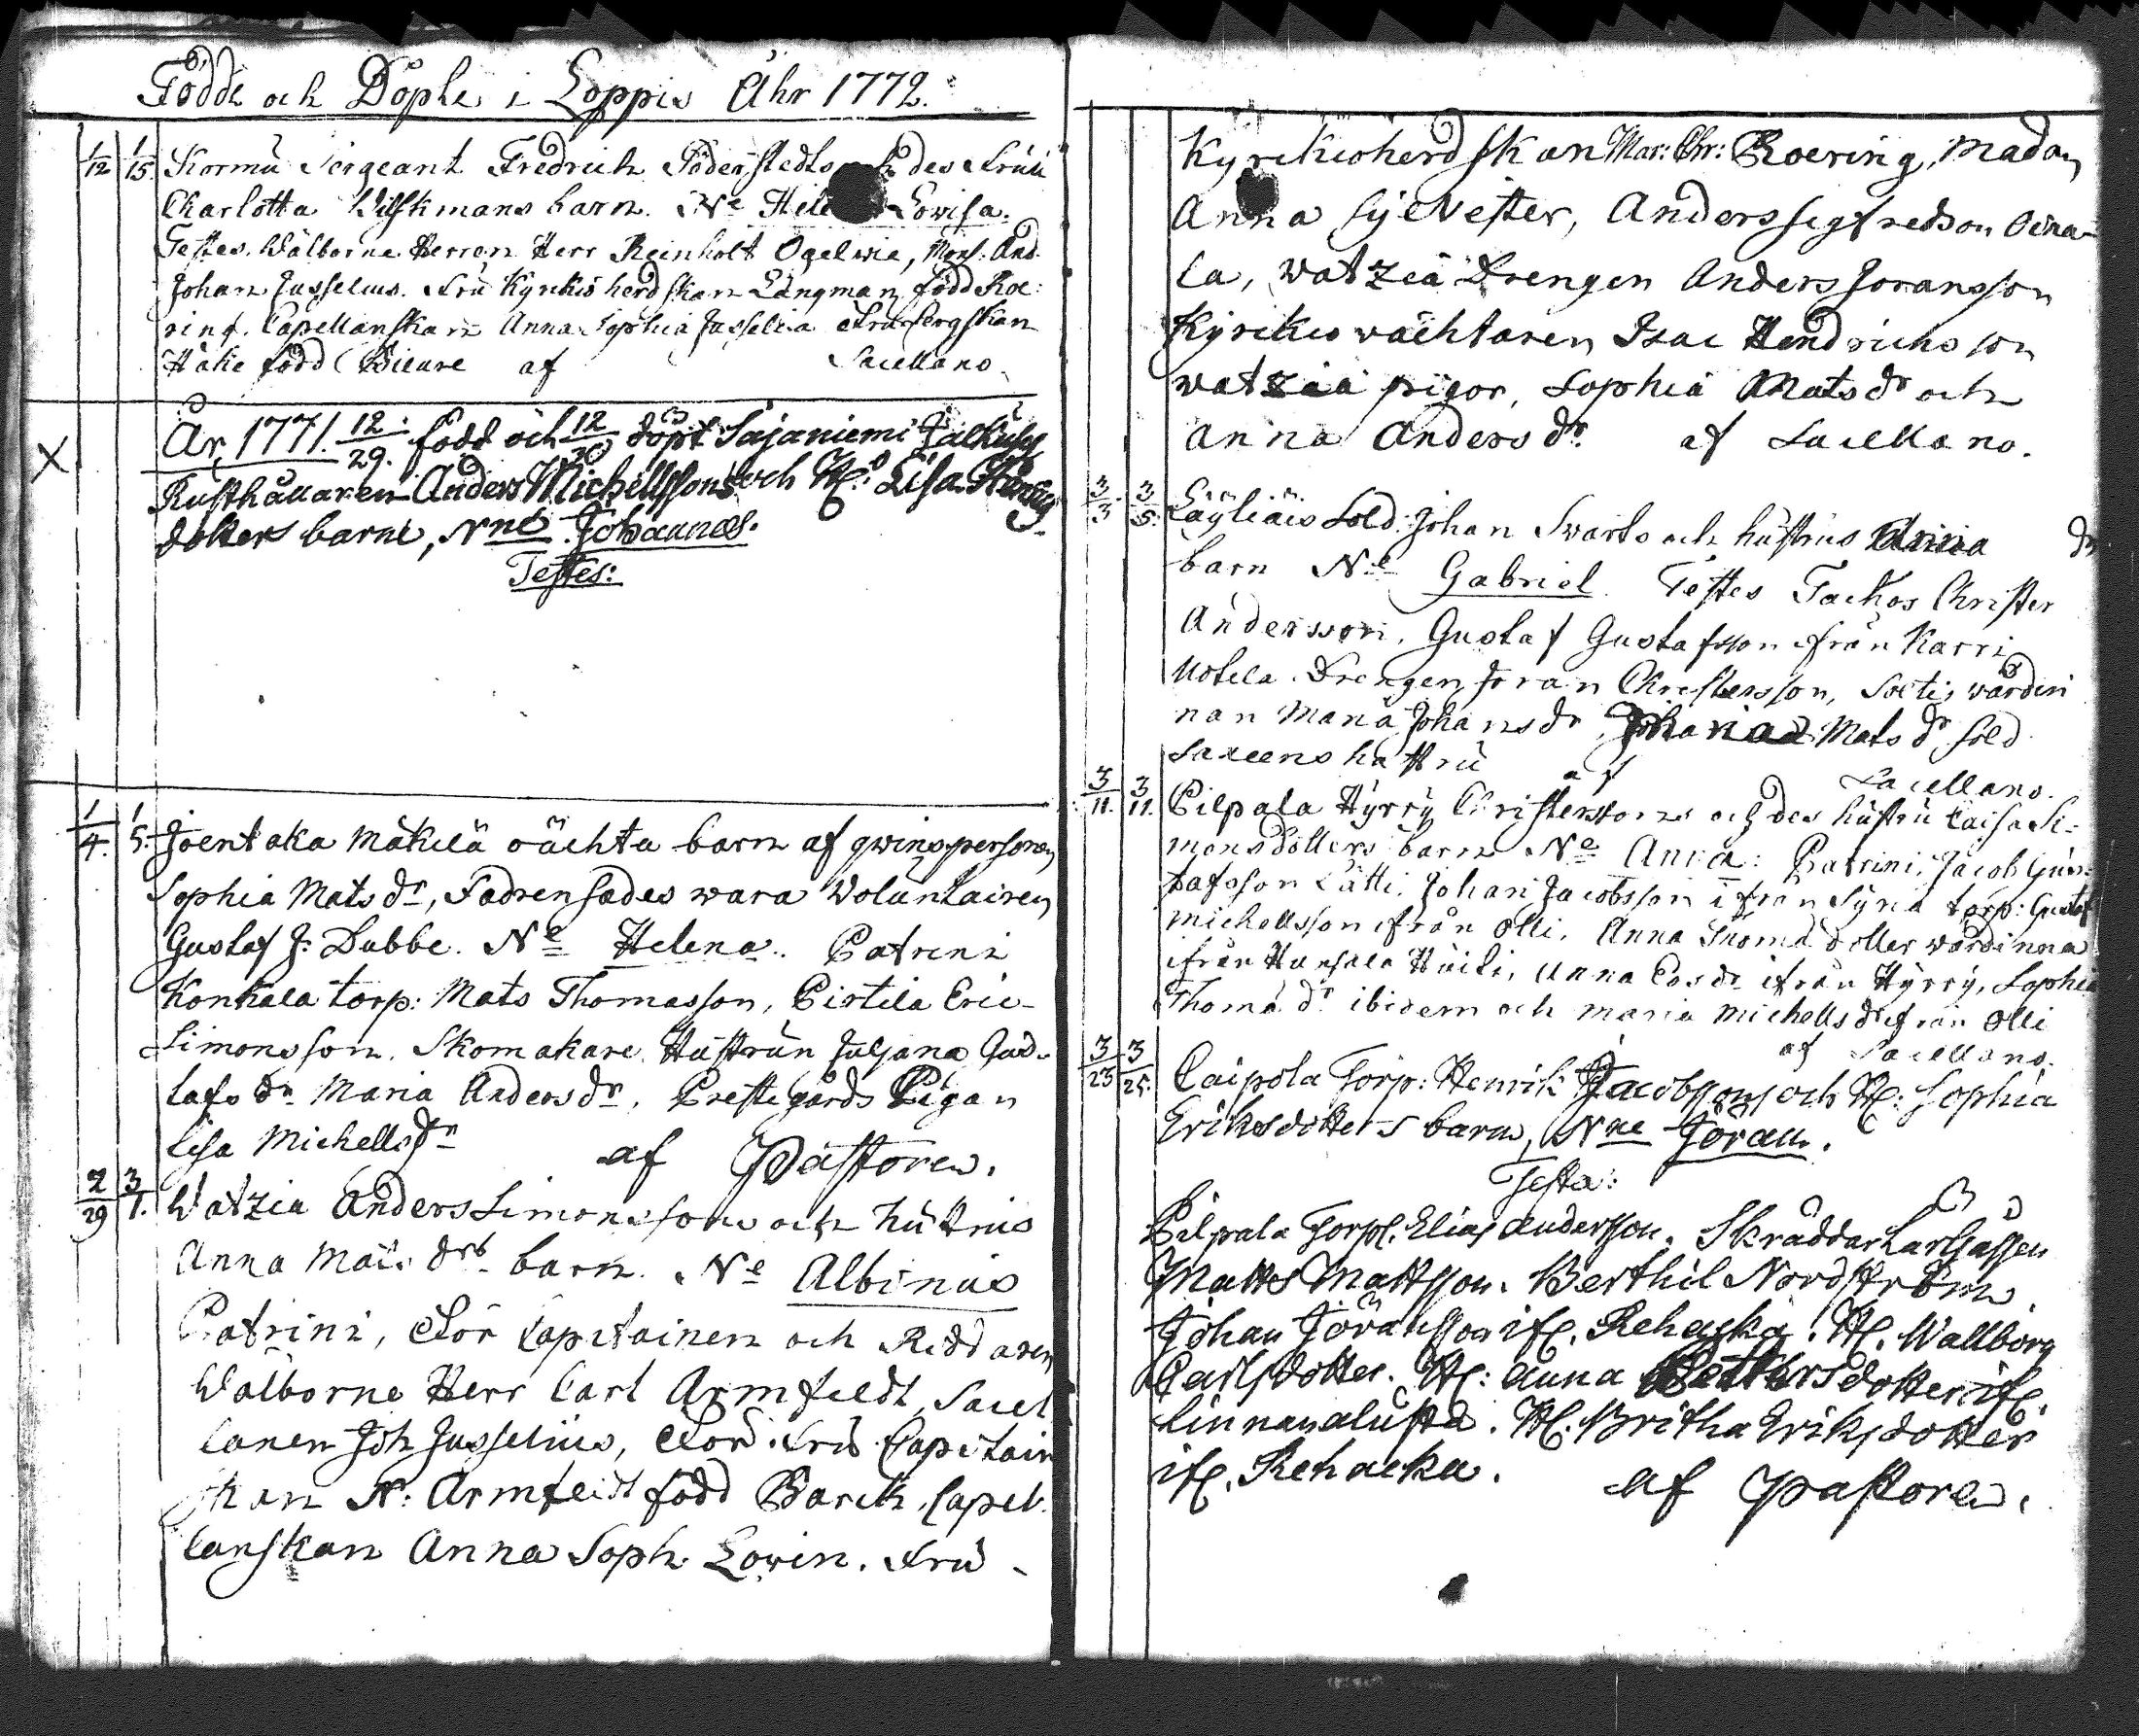 Födde och Döpte i Loppis Åhr 1772.
1/12 1/15. Kormu Sergeant Fredrich Söderstedts des Fruu
Charlotta Wilskmans barn. Ne Hele Lovisa.
Testes. Wälborne Herren Herr Reinholt Ogelwie, Mons: And.
Johan Jusselius. Fru Kyrkioherdskan Långman född Roe:
ring. Capellanskan Anna Sophia Jusselia
Håke född af Sacellano.
År 1771. 12/29. född och 12/30 döpt Sajaniemi
X
Rusthållaren Anders Michellssons och H: Lisa
dotters barn, Nne Johannes.
Testes:
1/4. 1/5. Joentaka Mäkilä oächta barn af qwinspersonen
Sophia Mats dr, Fadren sades wara Voluntairen
Gustaf J: Dubbe. Ne Helena. Patrini
Konkala torp: Mats Thomasson, Pistila Eric
Simonsson. Skomakare Hustrun Juljana Gus-
tafs dr Maria Anders dr. Prestegårds Pigan
Lisa Michells dr af Pastoren.
2/29 3/1. Watzia Anders Simonssons och hustrus
Anna Mats drs barn. Ne Albinus
Patrini, Capitainen och Riddaren
Wälborne Herr Carl Armfeldt, Sacel
lanen Joh Jusselius, Fru Capitain
skan N: Armfeldt född Barck, Capel
lanskan Anna Soph. Lovin. Fru
Kyrckioherdskan Mar: Chr: Roering, Madam
Anna Sylvester, Anders Sigfredson Oina-
la, Watzia Drengen Anders Joransson
Kyrckio wächtaren Isac Hendrichsson
watzia pigor, Sophia Mats dr och
Anna Anders dr. af Sacellano.
3/3. 3/5. Läyliäis Sold: Johan Svarts och hustrus Anna dr
barn Ne Gabriel. Testes Christer
Andersson, Gustaf Gustafsson från Karri
Uotila Drengen Joran Christersson, wärdin
nan Maria Johans dr, Mats dr Sold
hustru af Sacellano.
3/11. 3/11. Pilpala Hyrry Christerssons och des hustru Caisa Si-
monsdotters barn Ne Anna: Patrini, Jacob Gus-
tafsson Lätti. Johan Jacobsson ifrån Syria torp: Gustaf
Michellsson ifrån Olli. Anna Thoma dotter wärdinna
ifrån Hunsala Anna dr ifrån Hyrry, Sophia
Thoma dr ibidem och Maria Michells dr ifrån Olli
af Sacellano.
3/23 3/25. Caipola Torp: Henrik Jacobssons och H: Sophia
Eriksdotters barn, Nne Jöran.
Testa:
Pilpala Torp. Elias Andersson. Skräddar
Matts Mattsson. Berthil Nordström
Johan Göransson ifr. Rehacka. H. Wallborg
Carlsdotter. H: Anna dotter ifr.
Linnanalusta. H. Britha Eriksdotter
ifr. Rehacka. af Pastoren.